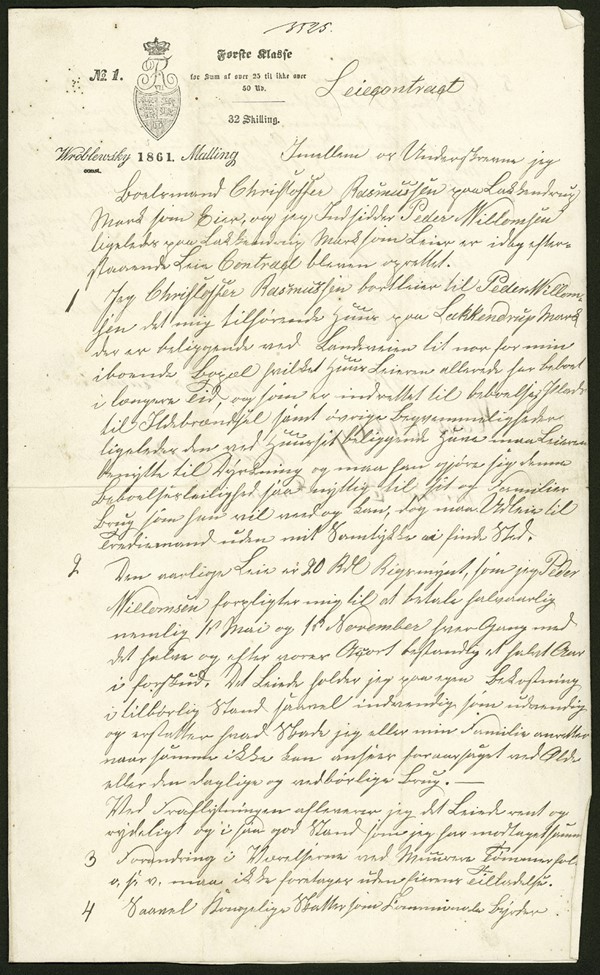 3525.
Første Klasse
№ 1.
for Sum af over 25 til ikke over
50 Rd.
Leiecontract
32 Skilling.
Wröblewsky 1861. Malling
const.
Imellem os Underskrevne jeg
Boelsmand Christoffer Rasmussen paa Lakkendrup
Mark som Eier, og jeg, Indsidder Peder Willomsen
ligeledes paa Lakkendrup Mark som Leier er idag efter-
staaende Leie Contract bleven oprettet.
1 Jeg Christoffer Rasmussen bortleier til Peder Willom-
sen det mig tilhørende Huus paa Lakkendrup Mark
der er beliggende ved Landeveien tit nor for min
iboende Bopæl hvilket Huus Leieren allerede har beboet
i længere Tid, og som er indrettet til beboelse, Plads
til Ildebrændsel samt øvrige Beqvemmeligheder
ligeledes den ved Huuset beliggende Have maa Leieren
benytte til Dyrkning og maa han gjøre sig denne
Beboelsesleilighed saa nyttig til sit og Families
Brug som han vil ved og kan, dog maa Udleie til
Trediemand uden mit Samtykke ei finde Sted.
2 Den aarlige Leie er 20 Rdl Rigsmynt, som jeg Peder
Willomsen forpligter mig til at betale halvaarlig
nemlig 1st Mai og 1st November hver Gang med
det halve og efter vores Akort bestandig et halvt Aar
i forskud. Det Leiede holder jeg paa egen Bekostning
i tilbørlig Stand saavel indvendig som udvendig
og erstatter hvad Skade jeg eller min Familie anretter
naar samme ikke kan ansees foraarsaget ved Ælde
eller den daglige og vedbørlige Brug. —
Ved Fraflytningen afleverer jeg det Leiede rent og
rydeligt og i saa god Stand som jeg har modtaget samme
3 Forandring i Værelserne ved Muure Tømmerhol
o. s. v. maa ikke foretages uden Eierens Tilladelse.
4 Saavel Kongelige Skatter som Communale Byrder